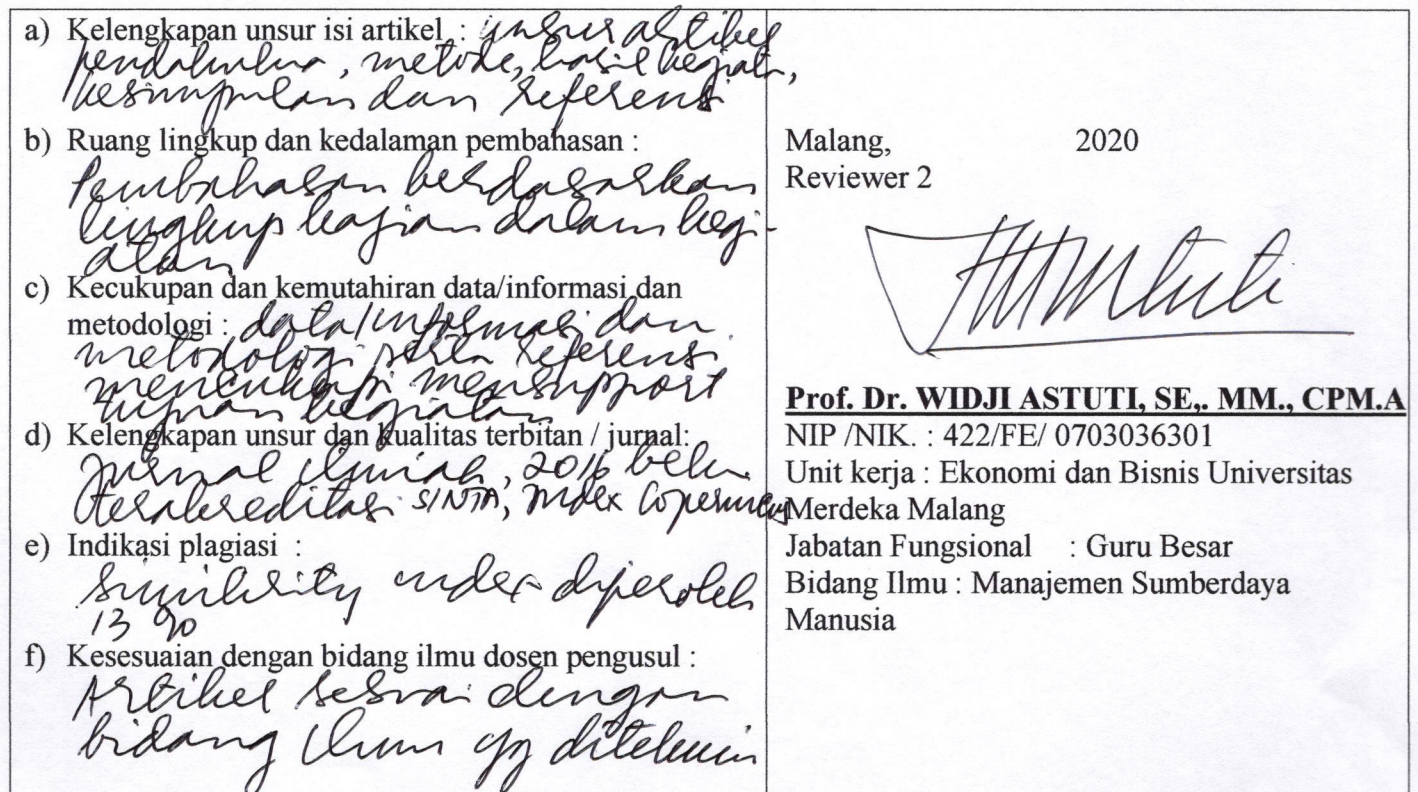 a) Kelengkapan unsur isi artikel : unsur artikel
pendahuluan, metode, hasil kegiatan,
kesimpulan dan referensi
b) Ruang lingkup dan kedalaman pembahasan :
Pembahasan berdasarkan
lingkup kajian dalam kegi-
atan
c) Kecukupan dan kemutahiran data/informasi dan
metodologi : data/informasi dan
metodologi serta referensi
mencukupi mensupport
tujuan kegiatan
d) Kelengkapan unsur dan kualitas terbitan / jurnal:
Jurnal ilmiah, 2016 belum
terakreditasi SINTA, Index Copernicus
e) Indikasi plagiasi :
Similarity index diperoleh
13 %
f) Kesesuaian dengan bidang ilmu dosen pengusul :
Artikel sesuai dengan
bidang ilmu yg ditekuni
Malang, 2020
Reviewer 2
Prof. Dr. WIDJI ASTUTI, SE,. MM., CPM.A
NIP /NIK. : 422/FE/ 0703036301
Unit kerja : Ekonomi dan Bisnis Universitas
Merdeka Malang
Jabatan Fungsional : Guru Besar
Bidang Ilmu : Manajemen Sumberdaya
Manusia